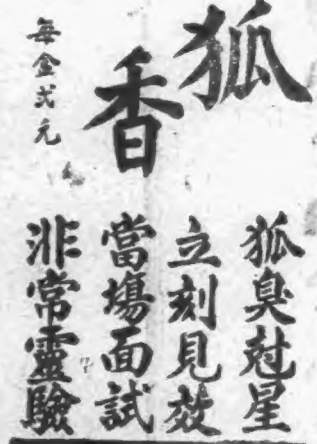 狐香
每盒弍元
狐臭尅星
立刻見效
當場面試
非常靈驗